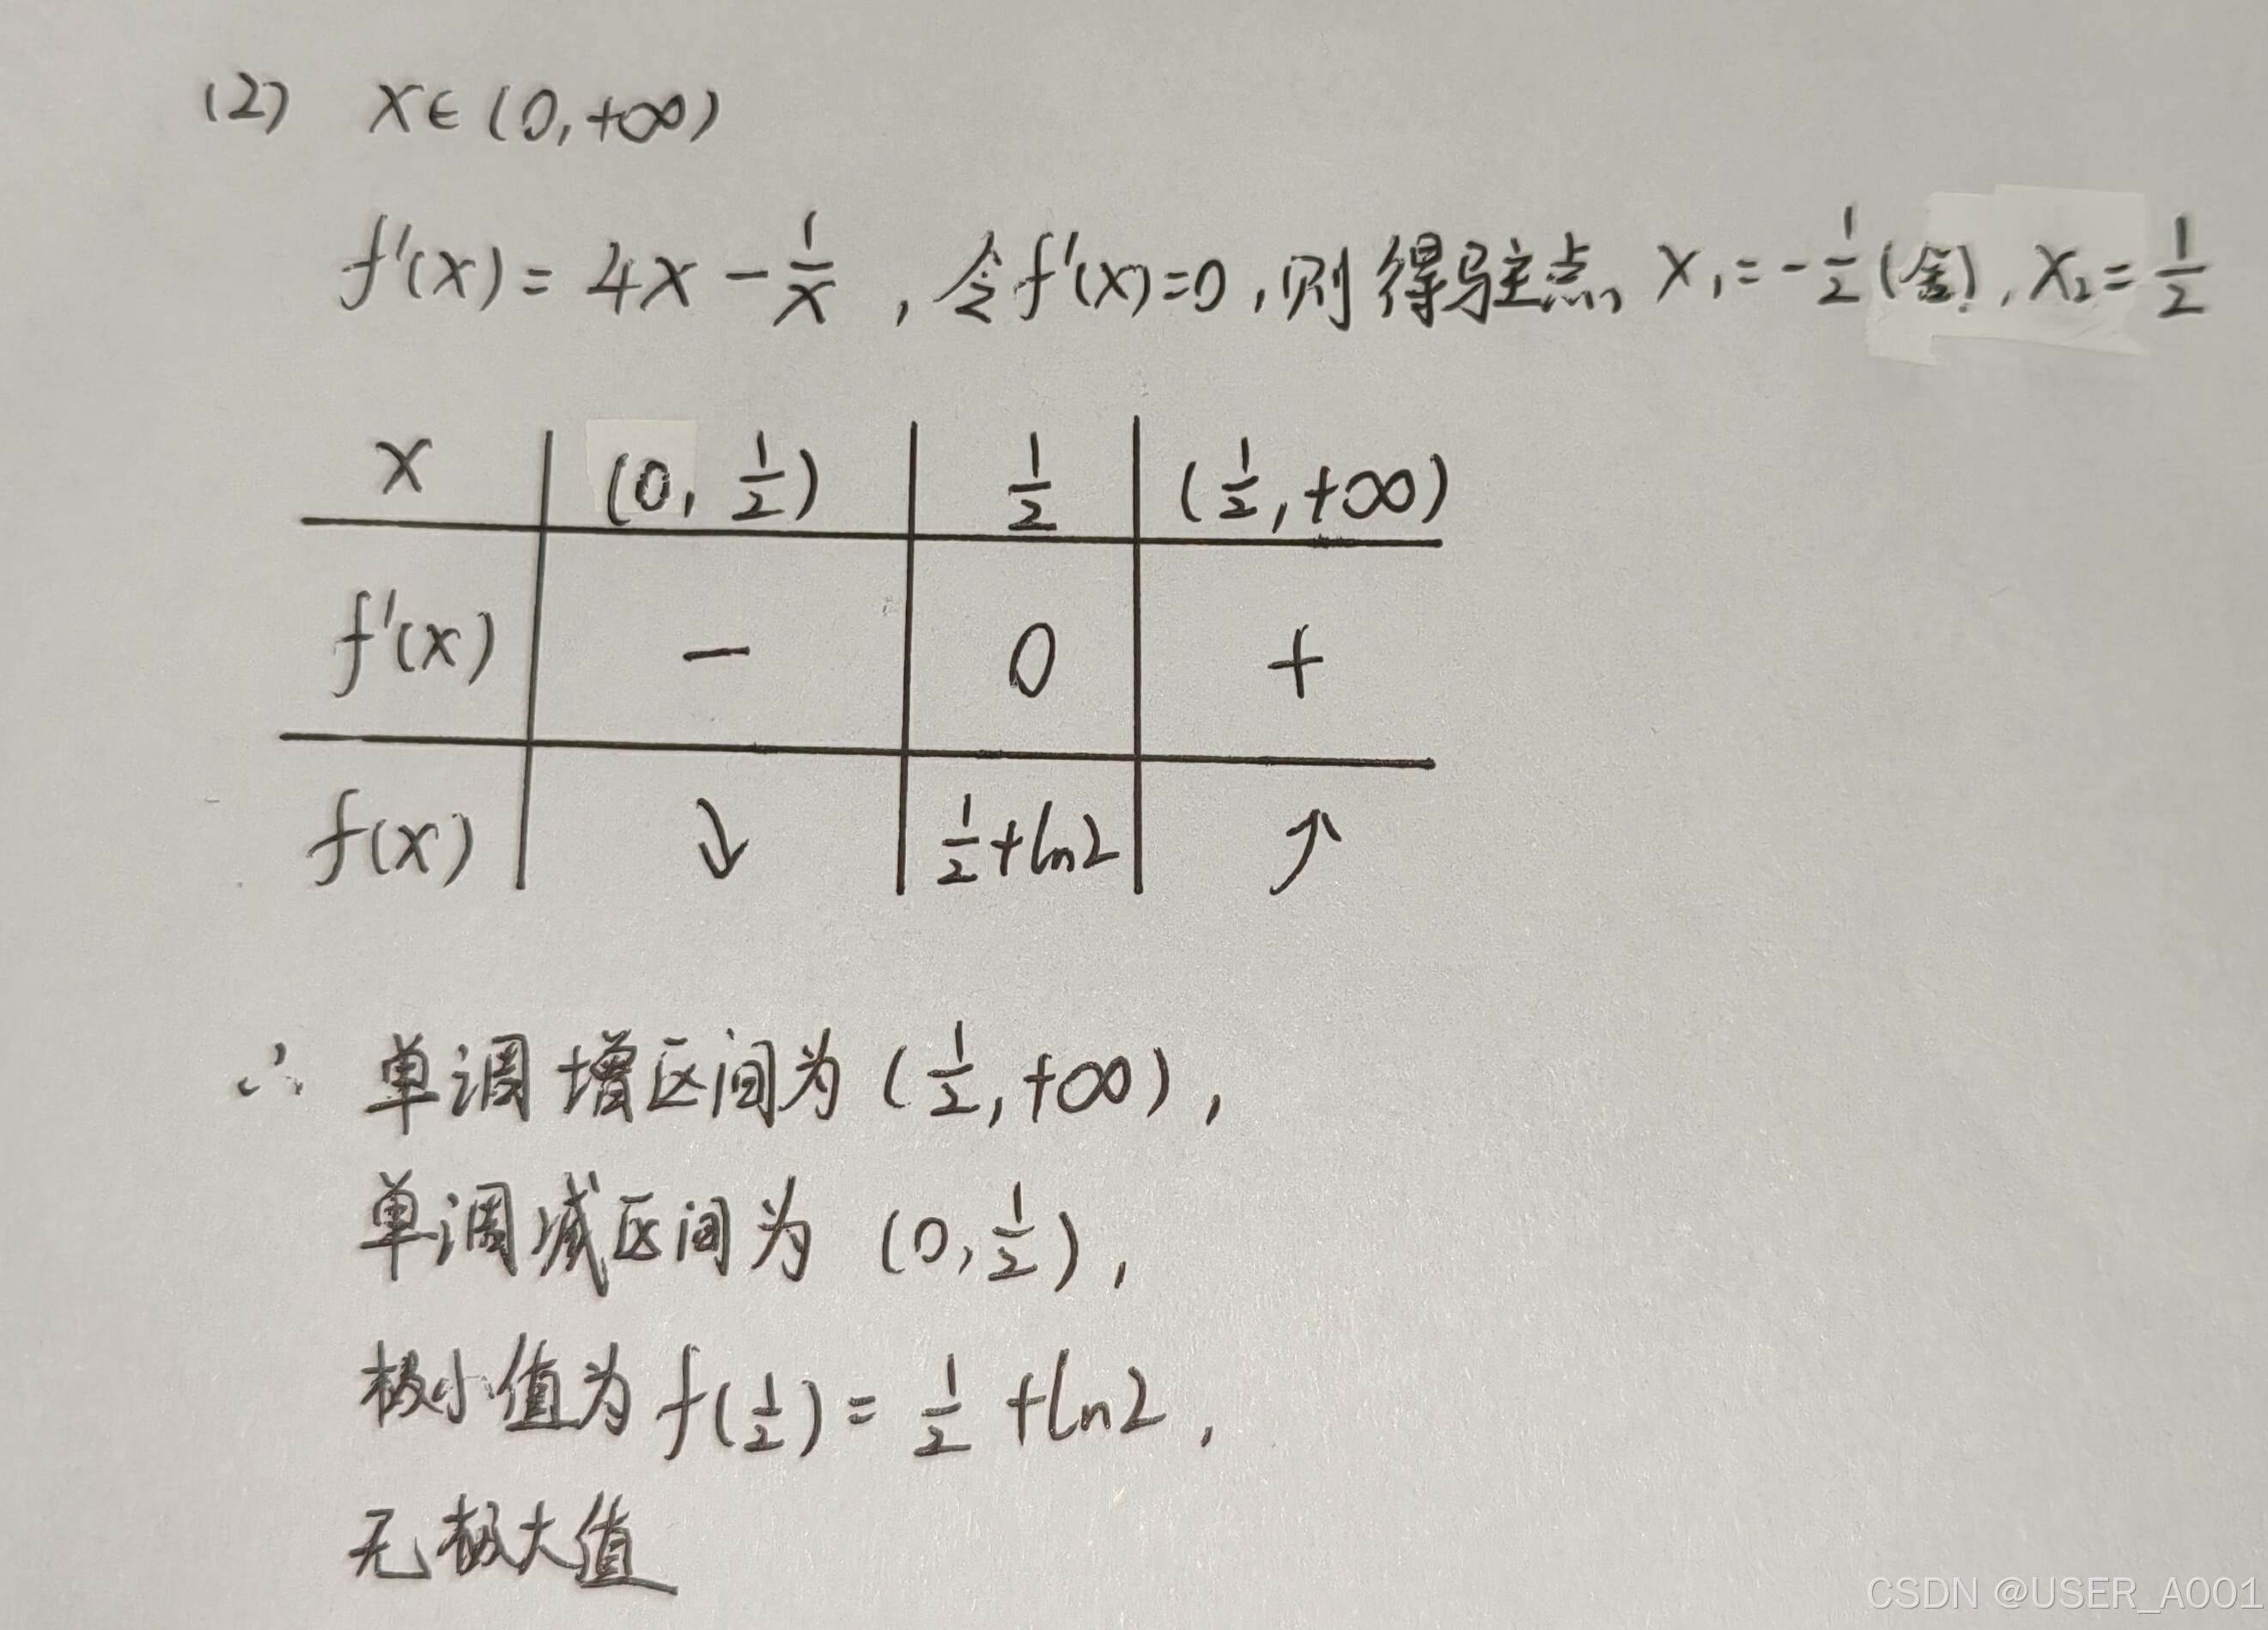 (2) x∈(0,+∞)
f'(x)=4x-1/x,令f'(x)=0,则得驻点 x₁=-1/2(舍),x₂=1/2
x (0,1/2) 1/2 (1/2,+∞)
f'(x) - 0 +
f(x) ↘ 1/2+ln2 ↗
∴ 单调增区间为(1/2,+∞),
单调减区间为(0,1/2),
极小值为f(1/2)=1/2+ln2,
无极大值
CSDN @USER_A001